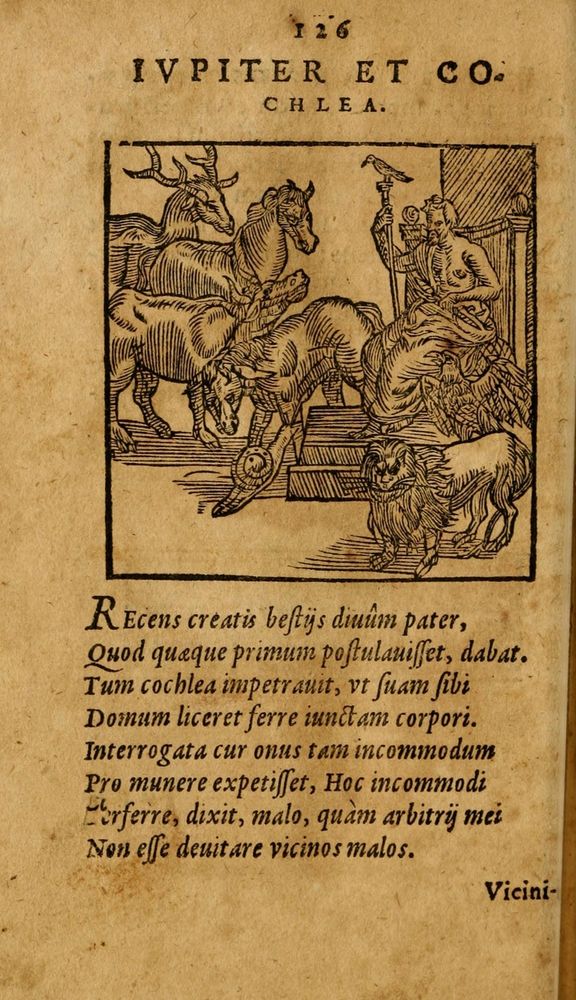 126
IVPITER ET CO-
CHLEA.
REcens creatis bestijs diuûm pater,
Quod quæque primum postulauisset, dabat.
Tum cochlea impetrauit, vt suam sibi
Domum liceret ferre iunctam corpori.
Interrogata cur onus tam incommodum
Pro munere expetisset, Hoc incommodi
Perferre, dixit, malo, quàm arbitrij mei
Non esse deuitare vicinos malos.
Vicini-